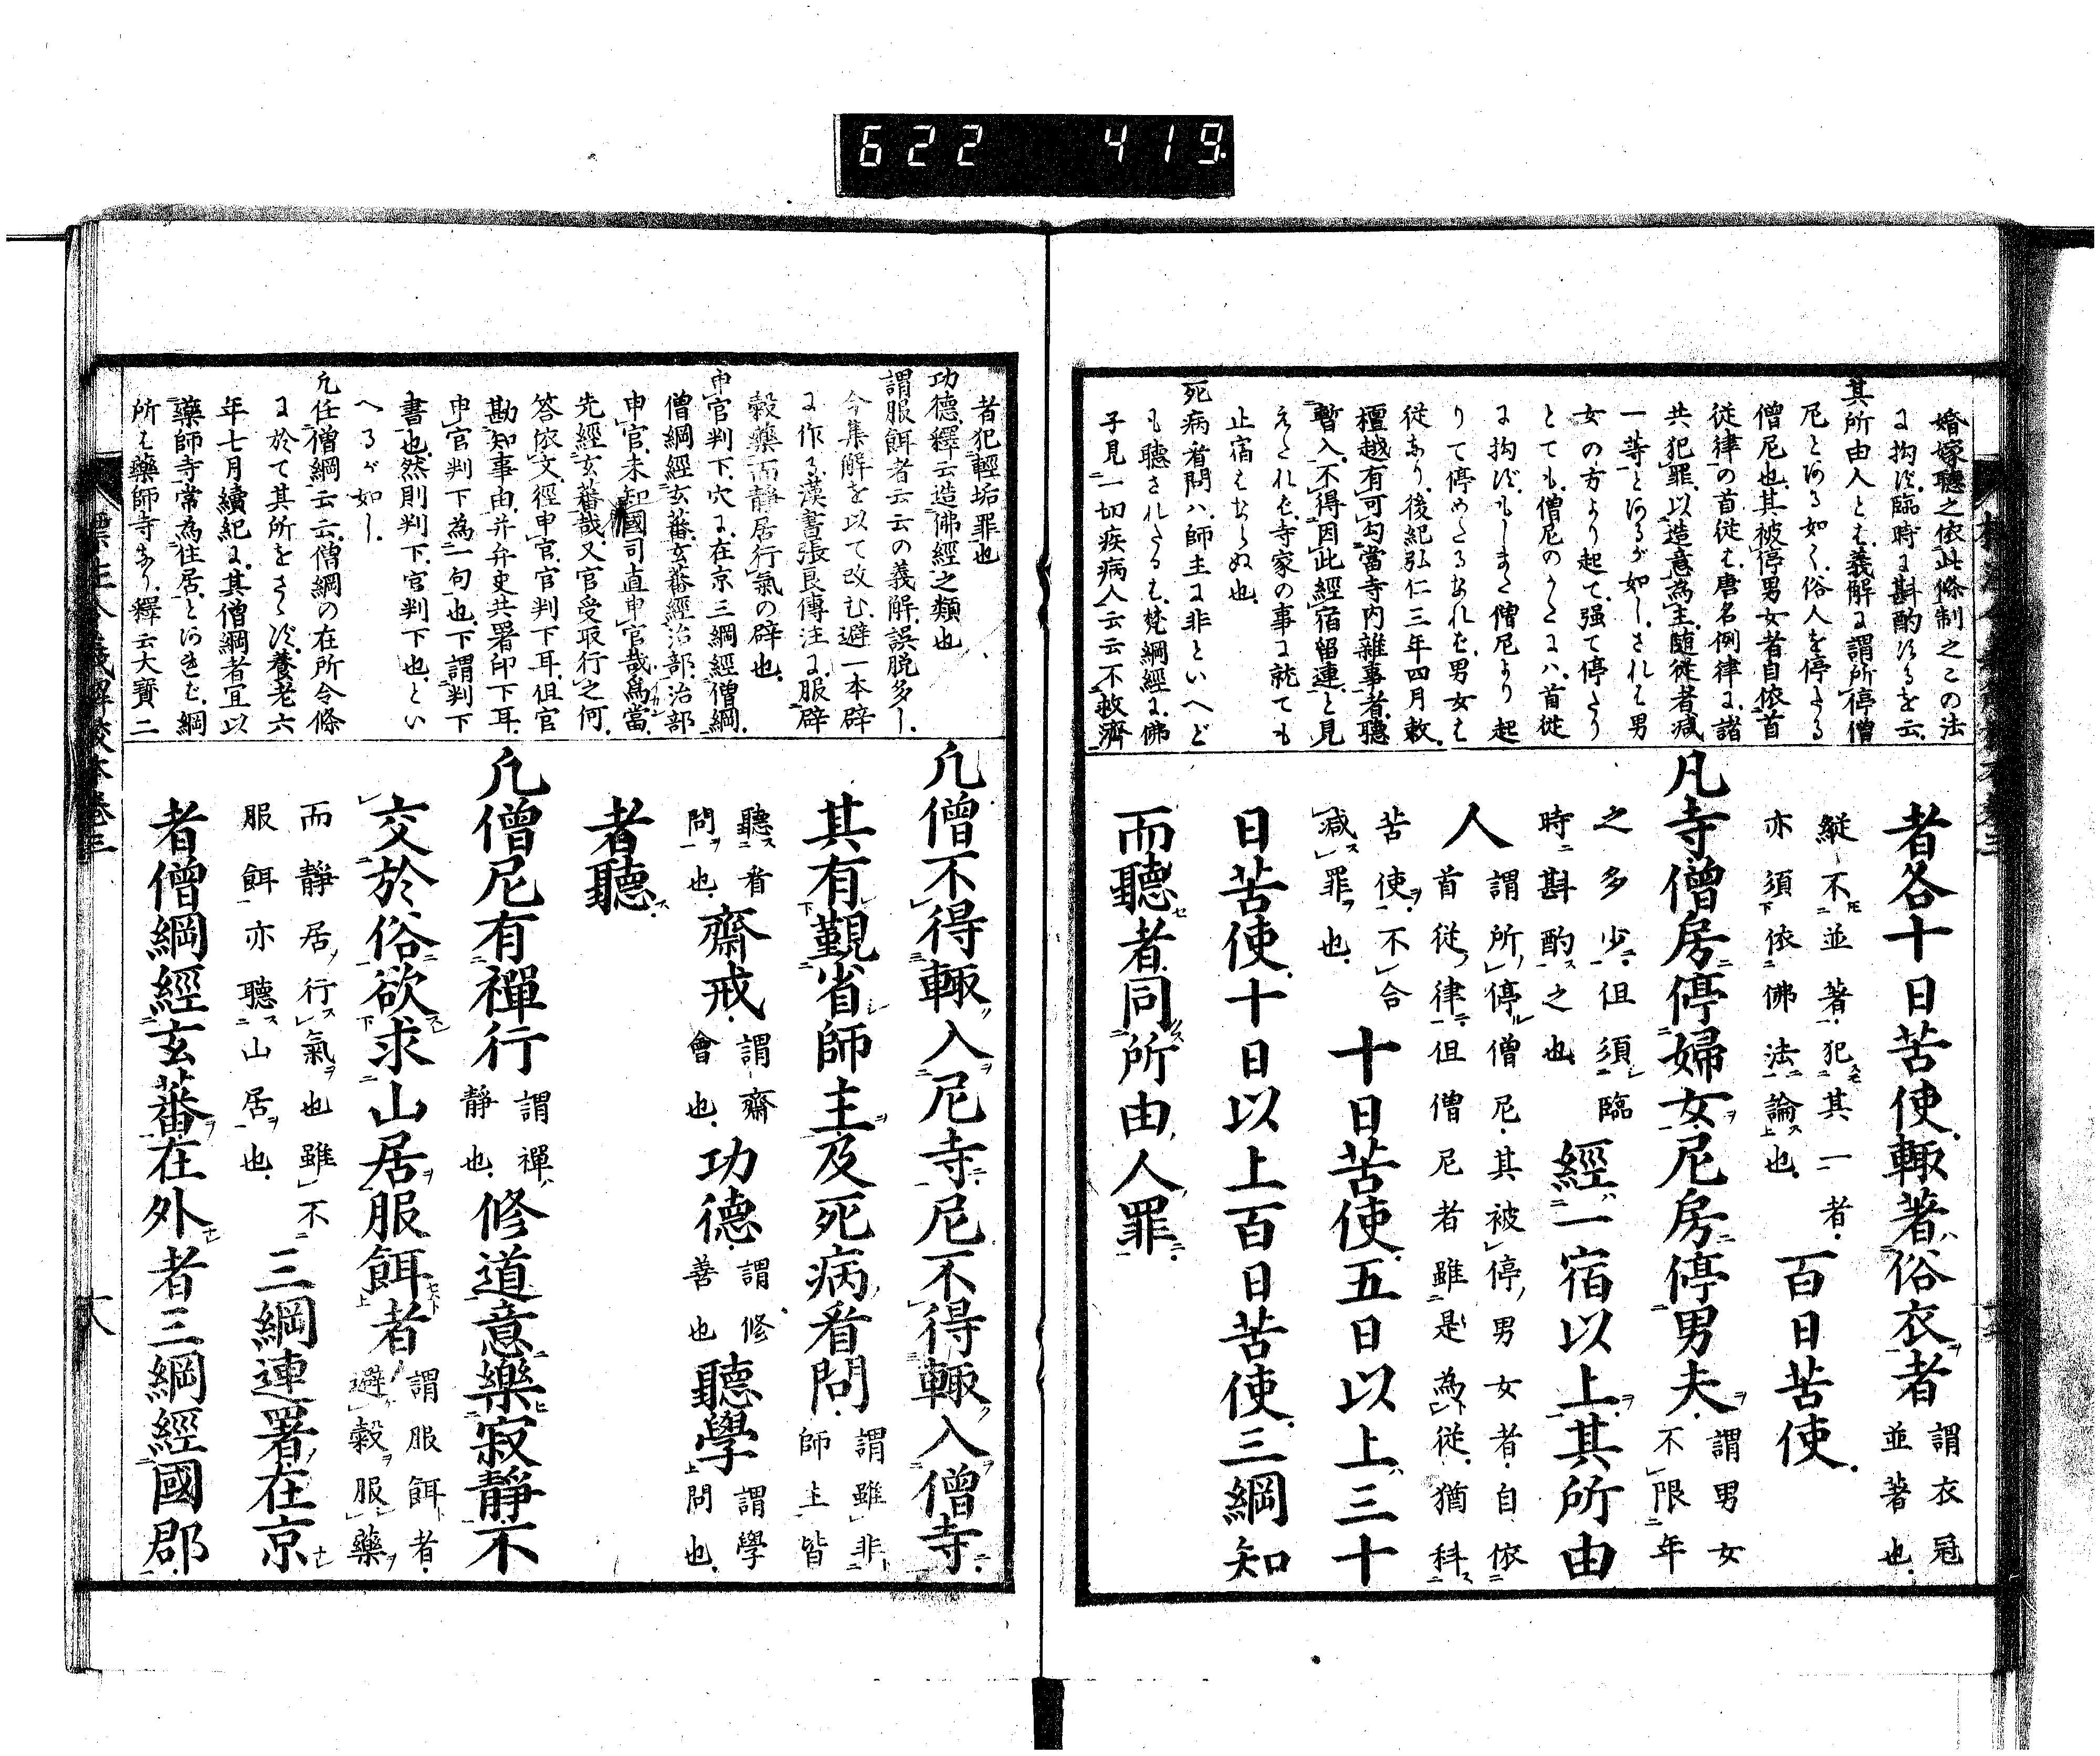 622 419.
婚嫁聽之依此條制之この法
に拘ず臨時に斟酌するを云
其所由人とは義解に謂所停僧
尼とある如く俗人を停たる
僧尼也其被停男女者自依首
從律の首從は唐名例律に諸
共犯罪以造意為主隨從者减
一等とあるが如しされは男
女の方より起て强て停たり
とても僧尼のかたにハ首從
に拘ずもしまた僧尼より起
りて停めたるなれは男女は
從なり後紀弘仁三年四月敕
檀越有可勾當寺内雜事者聽
暫入不得因此經宿留連と見
えたれは寺家の事に就ても
止宿はならぬ也
死病看問ハ師主に非といへど
も聽されたるは梵網經に佛
子見一切疾病人云云不救濟
者各十日苦使輙著俗衣者
謂衣冠
並著也
縱不並著犯其一者
亦須依佛法論也
百日苦使
凡寺僧房停婦女尼房停男夫
謂男女
不限年
之多少但須臨
時斟酌之也
經一宿以上其所由
人
謂所停僧尼其被停男女者自依
首從律但僧尼者雖是為從猶科
苦使不合
减罪也
十日苦使五日以上三十
日苦使十日以上百日苦使三綱知
而聽者同所由人罪
者犯輕垢罪也
功德釋云造佛經之類也
謂服餌者云云の義解誤脱多し
今集解を以て改む避一本辟
に作る漢書張良傳注に服辟
穀藥而靜居行氣の辟也
申官判下穴に在京三綱經僧綱
僧綱經玄蕃玄蕃經治部治部
申官未知國司直申官哉爲當
先經玄蕃哉又官受取行之何
答依文徑申官官判下耳但官
勘知事由并弁史共署印下耳
申官判下為一句也下謂判下
書也然則判下官判下也とい
へるが如し
凡任僧綱云云僧綱の在所令條
に於て其所をさゝず養老六
年七月續紀に其僧綱者宜以
藥師寺常為住居とあれば綱
所は藥師寺なり釋云大寶二
凡僧不得輙入尼寺尼不得輙入僧寺
其有覲省師主及死病看問
謂雖非
師主皆
聽看
問也
齋戒
謂齋
會也
功德
謂修
善也
聽學
謂學
問也
者聽
凡僧尼有禪行
謂禪
靜也
修道意樂寂靜不
交於俗欲求山居服餌者
謂服餌者
避穀服藥
而靜居行氣也雖不
服餌亦聽山居也
三綱連署在京
者僧綱經玄蕃在外者三綱經國郡